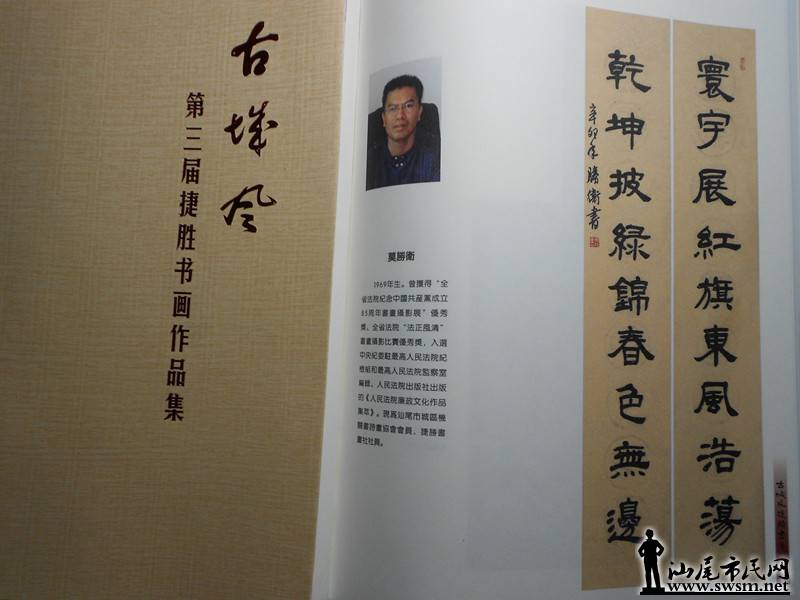 古城风
第三届捷胜书画作品集
莫勝衛
1969年生。曾獲得“全
省法院紀念中國共産黨成立
85周年書畫攝影展”優秀
獎、全省法院“法正風清”
書畫攝影比賽優秀獎，入選
中央紀委駐最高人民法院紀
檢組和最高人民法院監察室
編輯、人民法院出版社出版
的《人民法院廉政文化作品
集萃》。現爲汕尾市城區機
關書詩畫協會會員、捷勝書
畫社社員。
寰宇展紅旗東風浩蕩
乾坤披綠錦春色無邊
辛卯年勝衛書
汕尾市民网
www.swsm.net